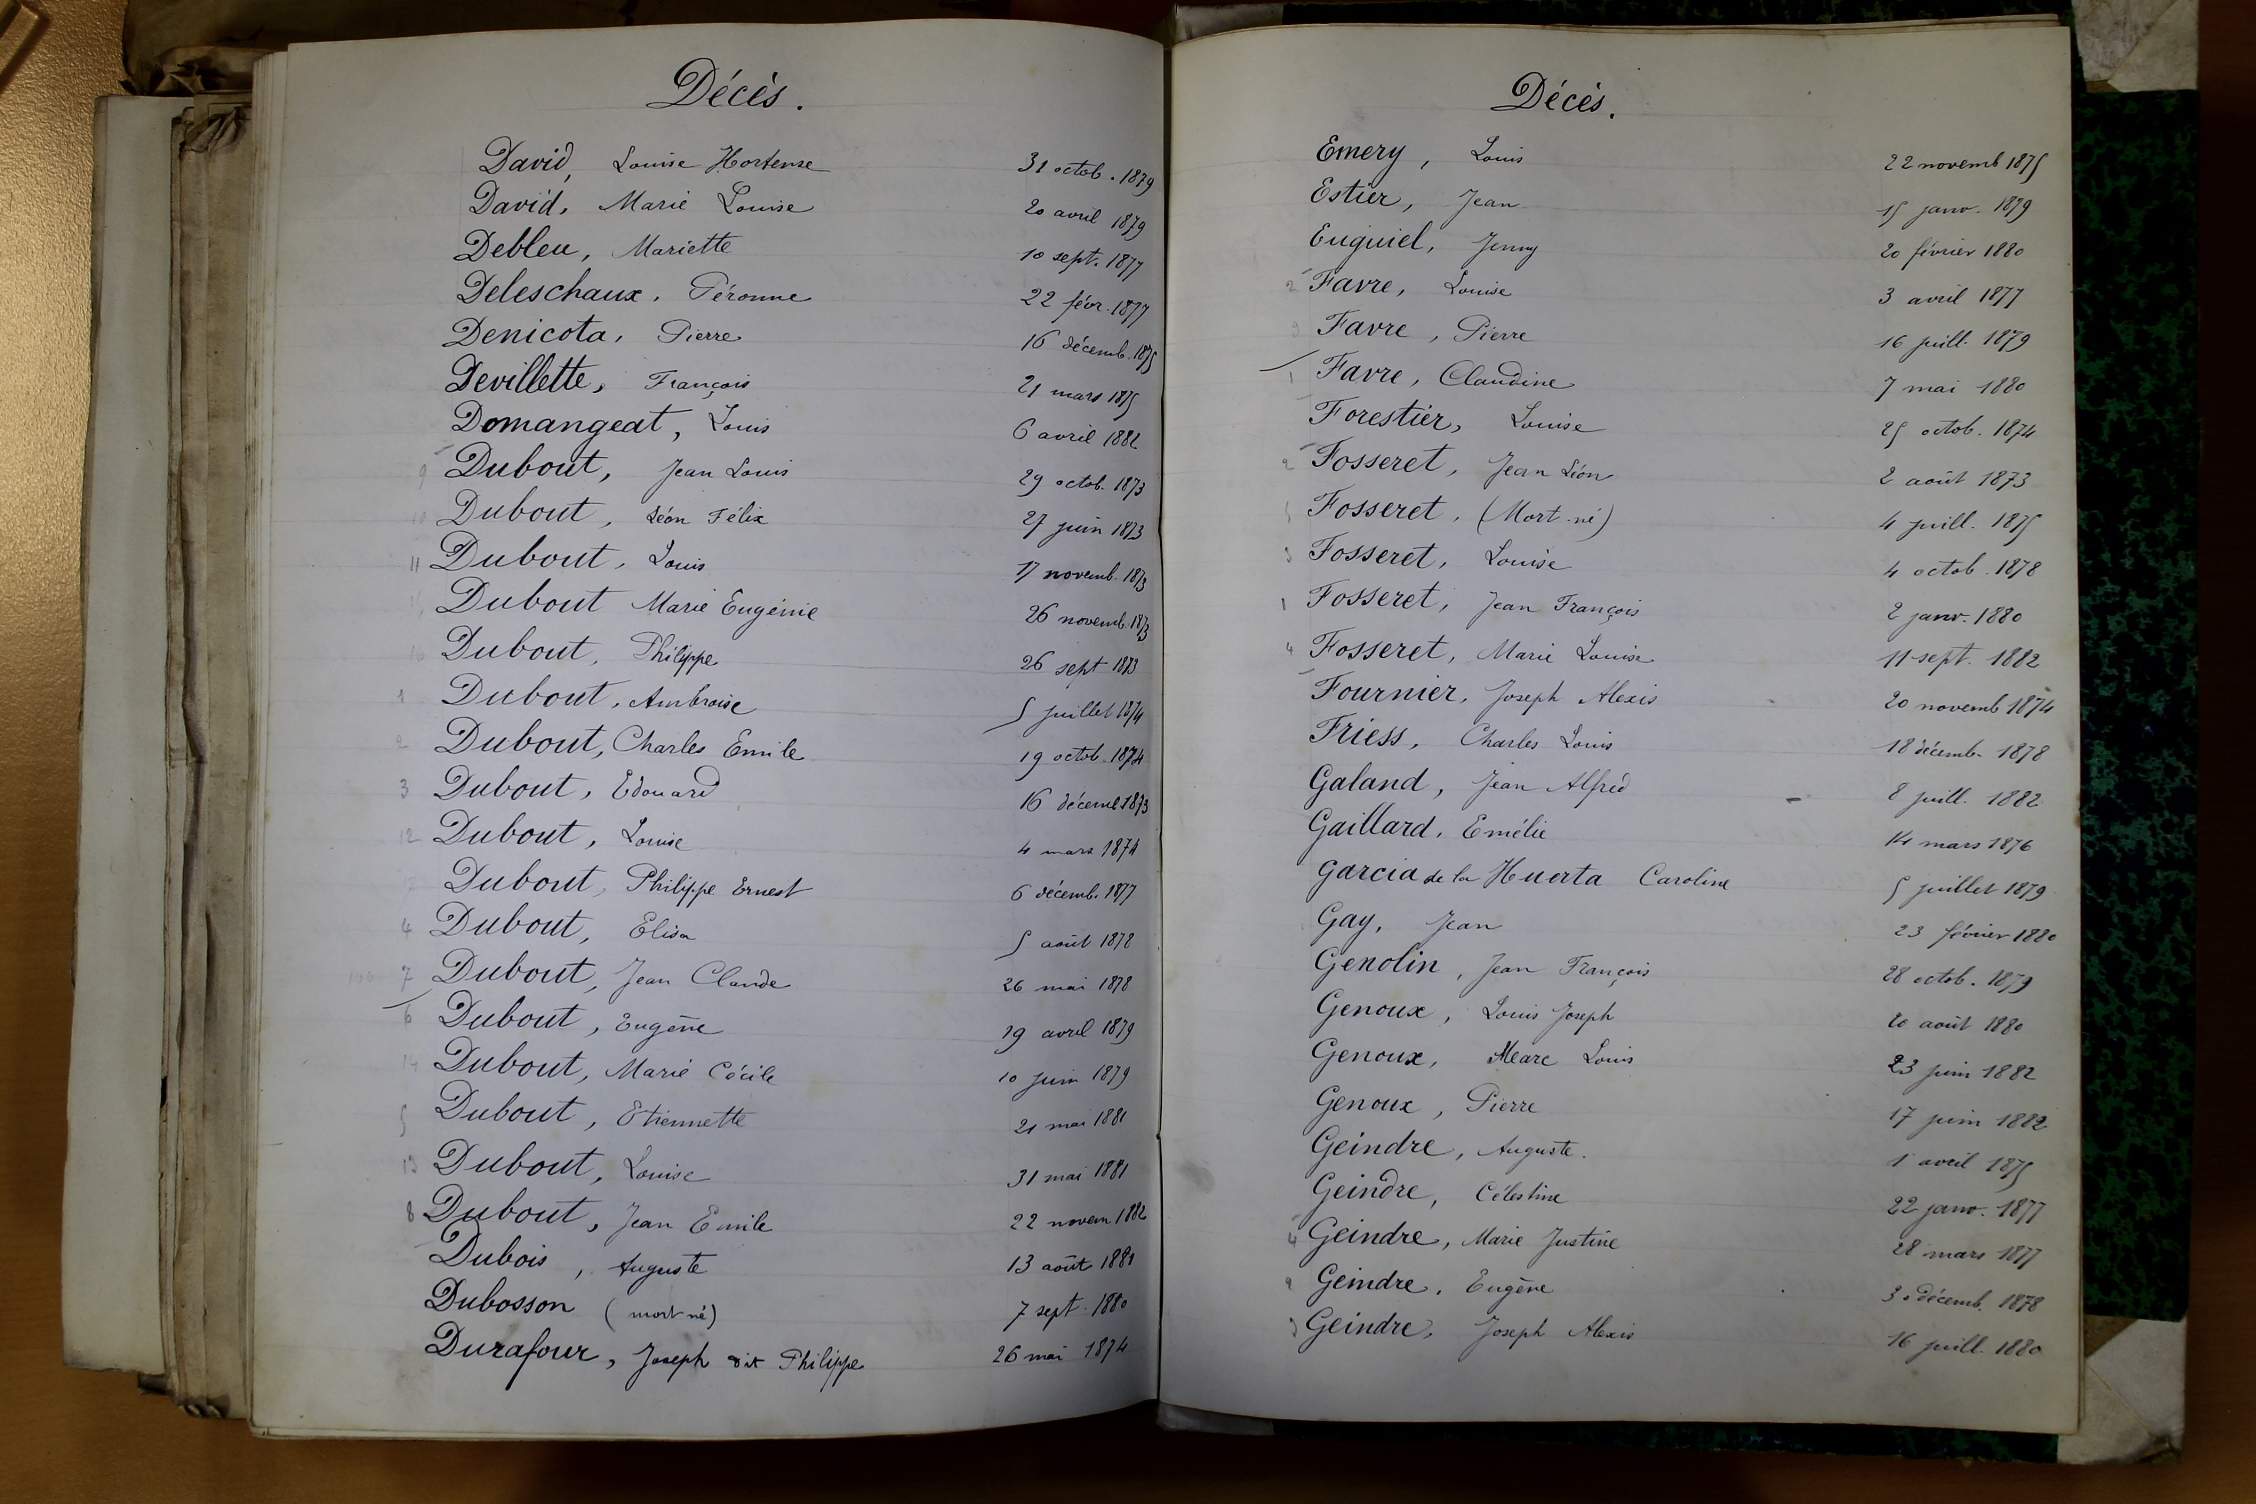 Décès.
David, Louise Hortense 31 octob. 1879
David, Marie Louise 20 avril 1879
Debleu, Mariette 10 sept. 1877
Deleschaux, Péronne 22 févr. 1877
Denicota, Pierre 16 décemb. 1875
Devillette, François 21 mars 1875
Domangeat, Louis 6 avril 1882
9 Dubout, Jean Louis 29 octob. 1873
10 Dubout, Léon Félix 27 juin 1873
11 Dubout, Louis 17 novemb. 1873
Dubout Marie Eugénie 26 novemb. 1873
16 Dubout, Philippe 26 sept 1873
1 Dubout, Ambroise 5 juillet 1874
2 Dubout, Charles Emile 19 octob. 1874
3 Dubout, Edouard 16 décemb 1873
12 Dubout, Louise 4 mars 1874
Dubout, Philippe Ernest 6 décemb. 1877
4 Dubout, Elisa 5 août 1878
7 Dubout, Jean Claude 26 mai 1878
6 Dubout, Eugène 19 avril 1879
14 Dubout, Marie Cécile 10 juin 1879
5 Dubout, Etiennette 21 mai 1881
13 Dubout, Louise 31 mai 1881
8 Dubout, Jean Emile 22 novem 1882
Dubois, Auguste 13 août 1881
Dubosson (mort né) 7 sept. 1880
Durafour, Joseph dit Philippe 26 mai 1874
Décès.
Emery, Louis 22 novemb 1875
Estier, Jean 15 janv. 1879
Euguiel, Jenny 20 février 1880
2 Favre, Louise 3 avril 1877
3 Favre, Pierre 16 juill. 1879
1 Favre, Claudine 7 mai 1880
Forestier, Louise 25 octob. 1874
2 Fosseret, Jean Léon 2 août 1873
5 Fosseret, (Mort-né) 4 juill. 1875
3 Fosseret, Louise 4 octob. 1878
1 Fosseret, Jean François 2 janv. 1880
4 Fosseret, Marie Louise 11 sept. 1882
Fournier, Joseph Alexis 20 novemb 1874
Friess, Charles Louis 18 décemb. 1878
Galand, Jean Alfred 8 juill. 1882
Gaillard, Emélie 14 mars 1876
Garcia de la Huerta Caroline 5 juillet 1879
Gay, Jean 23 février 1880
Genolin, Jean François 28 octob. 1879
Genoux, Louis Joseph 20 août 1880
Genoux, Marc Louis 23 juin 1882
Genoux, Pierre 17 juin 1882
Geindre, Auguste. 1 avril 1875
Geindre, Célestine 22 janv. 1877
4 Geindre, Marie Justine 28 mars 1877
2 Geindre, Eugène 30 décemb. 1878
3 Geindre, Joseph Alexis 16 juill. 1880